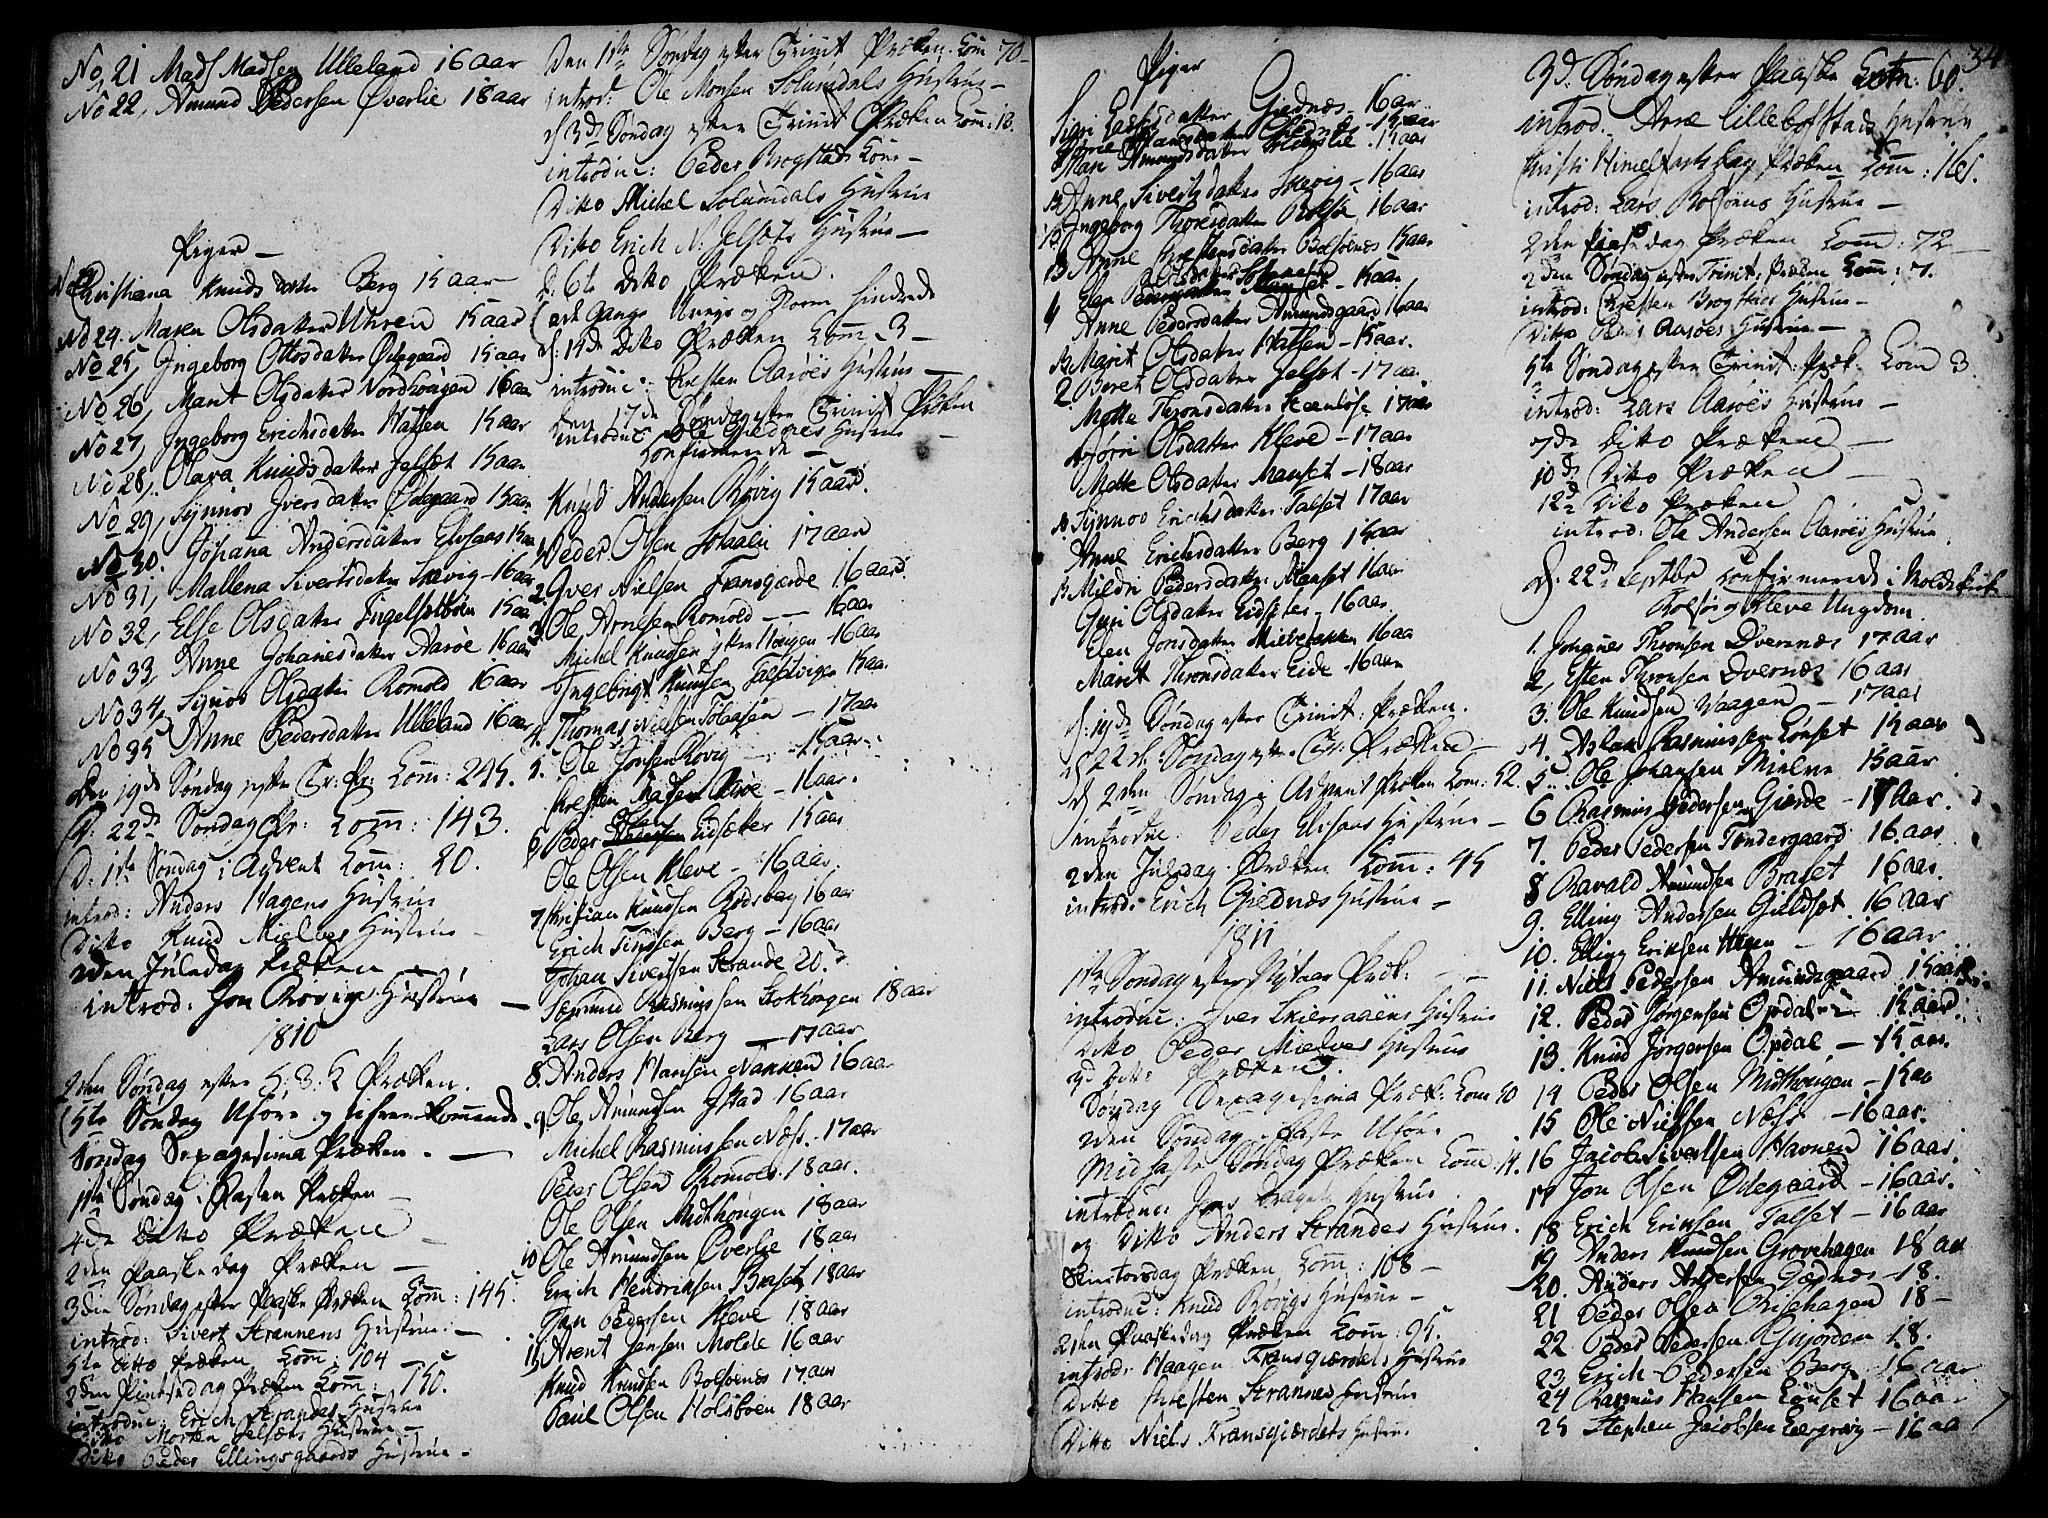 No. 21 Mads Madsen Ulleland 16 aar
No 22, Amund Pedersen Øverlie 18 aar
Piger —
Christiana Knuds datter Berg 15 aar
No 24. Maren Olsdatter Uhren 15 aar
No 25, Ingeborg Ottosdatter Ødegaard 15 aar
No 26, Marit Olsdatter Nordhougen 16 aar
No 27, Ingeborg Erichsdatter Hatlen 15 aar
No 28, Olava Knudsdatter Jelset 15 aar
No 29, Synnov Iversdatter Ødegaard 15 aar
No 30. Johana Andersdatter Elvsaas 15 aar
No 31, Mallena Sivertsdatter Solevig - 16 aar
No 32, Else Olsdatter 15 aar
No 33, Anne Johanesdatter Aarøe 16 aar
No 34, Synnov Olsdatter Romold 16 aar
No 35 Anne Pedersdatter Ulleland 16 aar
Den 19de Søndag efter Tr: Pr: Com: 245.
D: 22de Søndag Pr: Com: 143.
D: 1ste Søndag i Advent Com: 20.
introd: Anders Hagens Hustrue
Ditto Knud Mielves Hustrue
2den Juledag Præken —
introd: Jon Røvigs Hustrue —
1810
2den Søndag efter H: 3: K Præken.
5te Søndag Uføre og ifremkommende
Søndag Sexagesima Præken. —
1ste Søndag i Fasten Præken —
4de Ditto Præken —
2den Paaskedag Præken —
3die Søndag efter Paaske Præken Com: 145.
introd: Sivert Strannens Hustrue —
5te Ditto Præken Com: 104
2den Pintsedag Præken Com: 150.
introduc: Erich Strandes Hustrue
Ditto Morten Jelsæts Hustrue —
Ditto Peder Ellingsgaards Hustrue —
Den 1ste Søndag efter Trinit Præken. Com: 70 —
introd: Ole Monsen Solumdals Hustrue —
d 3de Søndag efter Trinit Præken Com: 13.
introduc: Peder Brogstads Kone —
Ditto Michel Solumdals Hustrue
Ditto Erich N: Jelsets Hustrue —
d: 6te Ditto Præken.
Gange Storm hindrede
d: 15de Ditto Præken Com. 3 —
introduc: Christen Aarøes Hustrue —
Den 17de Søndag efter Trinit Præken
introduc Ole Giednes Hustrue —
Confirmerede —
Knud Andersen Røvig 15 aar.
1. Peder Olsen Solaalie 17 aar
2. Iver Nielsen Fransgærde 16 aar.
3. Ole Arnesen Romold — 16 aar
Michel Knudsen ytter Hougen - 16 aar
Ingebrigt Knudsen Talsetvigen 15 aar
4. Thomas Nielsen Tølaasen — 17 aar
5. Ole Jonsen Røvig — 15 aar
Christen Madsen - 16 aar.
6 Peder Olsen Eidsæter 15 aar
Ole Olsen Kleve - 16 aar.
7 Christian Knudsen Rødsberg 16 aar
Erich Knudsen Berg — 16 aar
Johan Sivertsen Strande 20.
Rasmussen Bokhougen 18 aar
Lars Olsen Berg — 17 aar
8. Anders Hansen Nakken 16 aar
9. Ole Amundsen Istad 16 aar
Michel Rasmussen Næss. - 17 aar
Peder Olsen Romold - 18 aar.
Ole Olsen Midthougen 18 aar
10 Ole Amundsen Øverlie 18 aar
Erich Hendriksen Braset 18 aar
Jan Pedersen Kleve 18 aar
11 Arent Jensen Molde 16 aar
Knud Knudsen Bolsønes 17 aar
Paul Olsen Holsbøen 18 aar
34
Piger
Siri Ladsesdatter Giednæs - 16 aar
Mari Amundsdatter . 15 aar
B Anne Sivertsdatter Solevig - 16 aar
B Ingeborg Thronsdatter Bolsøe 16 aar
B Anne Christensdatter Bolsønes 15 aar
Elen - 15 aar
4 Anne Pedersdatter Amundsgaard 16 aar
B Marit Olsdatter Hatlen - 15 aar.
2 Beret Olsdatter Jelset - 17 aar
Mette Thronsdatter Steenløse 17 aar
Jørri Olsdatter Kleve - 17 aar
Mette Olsdatter Manset - 18 aar
B Synnov Erichsdatter Talset 17 aar
Anne Erichsdatter Berg 15 aar
B Mildri Pedersdatter Manset 16 aar
Guri Olsdatter Eidseter - 16 aar
Elen Jonsdatter 16 aar
Marit Thronsdatter Eide - 16 aar
d: 19de Søndag efter Trinit: Præken.
d 22de Søndag efter Tr: Præken —
d 2den Søndag i Advent Præken Com. 52.
introduc: Peder Elisons Hustrue —
2den Juledag Præken Com: 45
introd: Erich Giednæs Hustrue —
1811
1ste Søndag efter Nytaar Præk: —
introduc: Iver Skiersaaens Hustrue
Ditto Peder Mielves Hustrue
3de Ditto Præken.
Søndag Sexagesima Præk: Com 30
2den Søndag i Faste Uføre
Midfaste Søndag Præken Com: 14.
introduc: Jens Hustrue
og Ditto Anders Strandes Hustrue.
Skiertorsdag Præken Com: 108 —
introduc: Knud Røvigs Hustrue —
2den Paaskedag Præken Com: 95.
introd: Haagen Fransgiærdets Hustrue
Ditto Christen Strannes Hustrue
Ditto Niels Fransgiærdets Hustrue
3d: Søndag efter Paaske Com: 60.
introd: Arne Lillebostads Hustrue
Christi Himelfartsdag Præken Com: 165.
introd: Lars Bolsøens Hustrue —
2den Pinsedag Præken Com: 72 —
2den Søndag efter Trinit: Præken Com: 7.
introd: Christen Brogsties Hustrue —
Ditto Aarøes Hustrue —
5te Søndag efter Trinit: Præk: Com 3
introd: Lars Aarøes Hustrue —
7de Ditto Præken —
10de Ditto Præken —
12te Ditto Præken
introd: Ole Andersen Aarøes Hustrue
d: 22de Septbr Confirmerede i Molde Kirke
Bolsøe og Kleve Ungdom.
1. Johanes Thronsen Dvernæs 17 aar
2, Esten Thronsen Dvernæs 16 aar
3. Ole Knudsen Vaagen — 17 aar
4. Aslak Rasmussen Lønset 15 aar
5. Ole Johansen Mielve 15 aar
6 Rasmus Pedersen Gierde - 17 aar.
7. Peder Pedersen Tøndergaard 16 aar
8 Ravald Amundsen Braset 16 aar.
9. Elling Andersen Guldset 16 aar
10. Elling Eriksen Hagen — 16 aar
11. Niels Pedersen Amundsgaard 15 aar
12. Peder Jørgensen Opdal — 15 aar.
13. Knud Jørgensen Opdal — 15 aar.
14 Peder Olsen Midthougen - 15 aar
15 Ole Nielsen Næss - 16 aar.
16 Jacob Sivertsen Havnen 16 aar.
17 Jon Olsen Ødegaard - 16 aar.
18 Erich Eriksen Talset — 16 aar
19 Anders Knudsen Grovehagen 18 aar
20. Anders Andersen Giednæs - 18.
21 Peder Olsen Risehagen 18 —
22 Peder Pedersen Giujorden 18.
23 Erich Pedersen Berg 16 aar
24 Rasmus Hansen Lønset 16 aar
25 Stephen Jacobsen - 16 aar